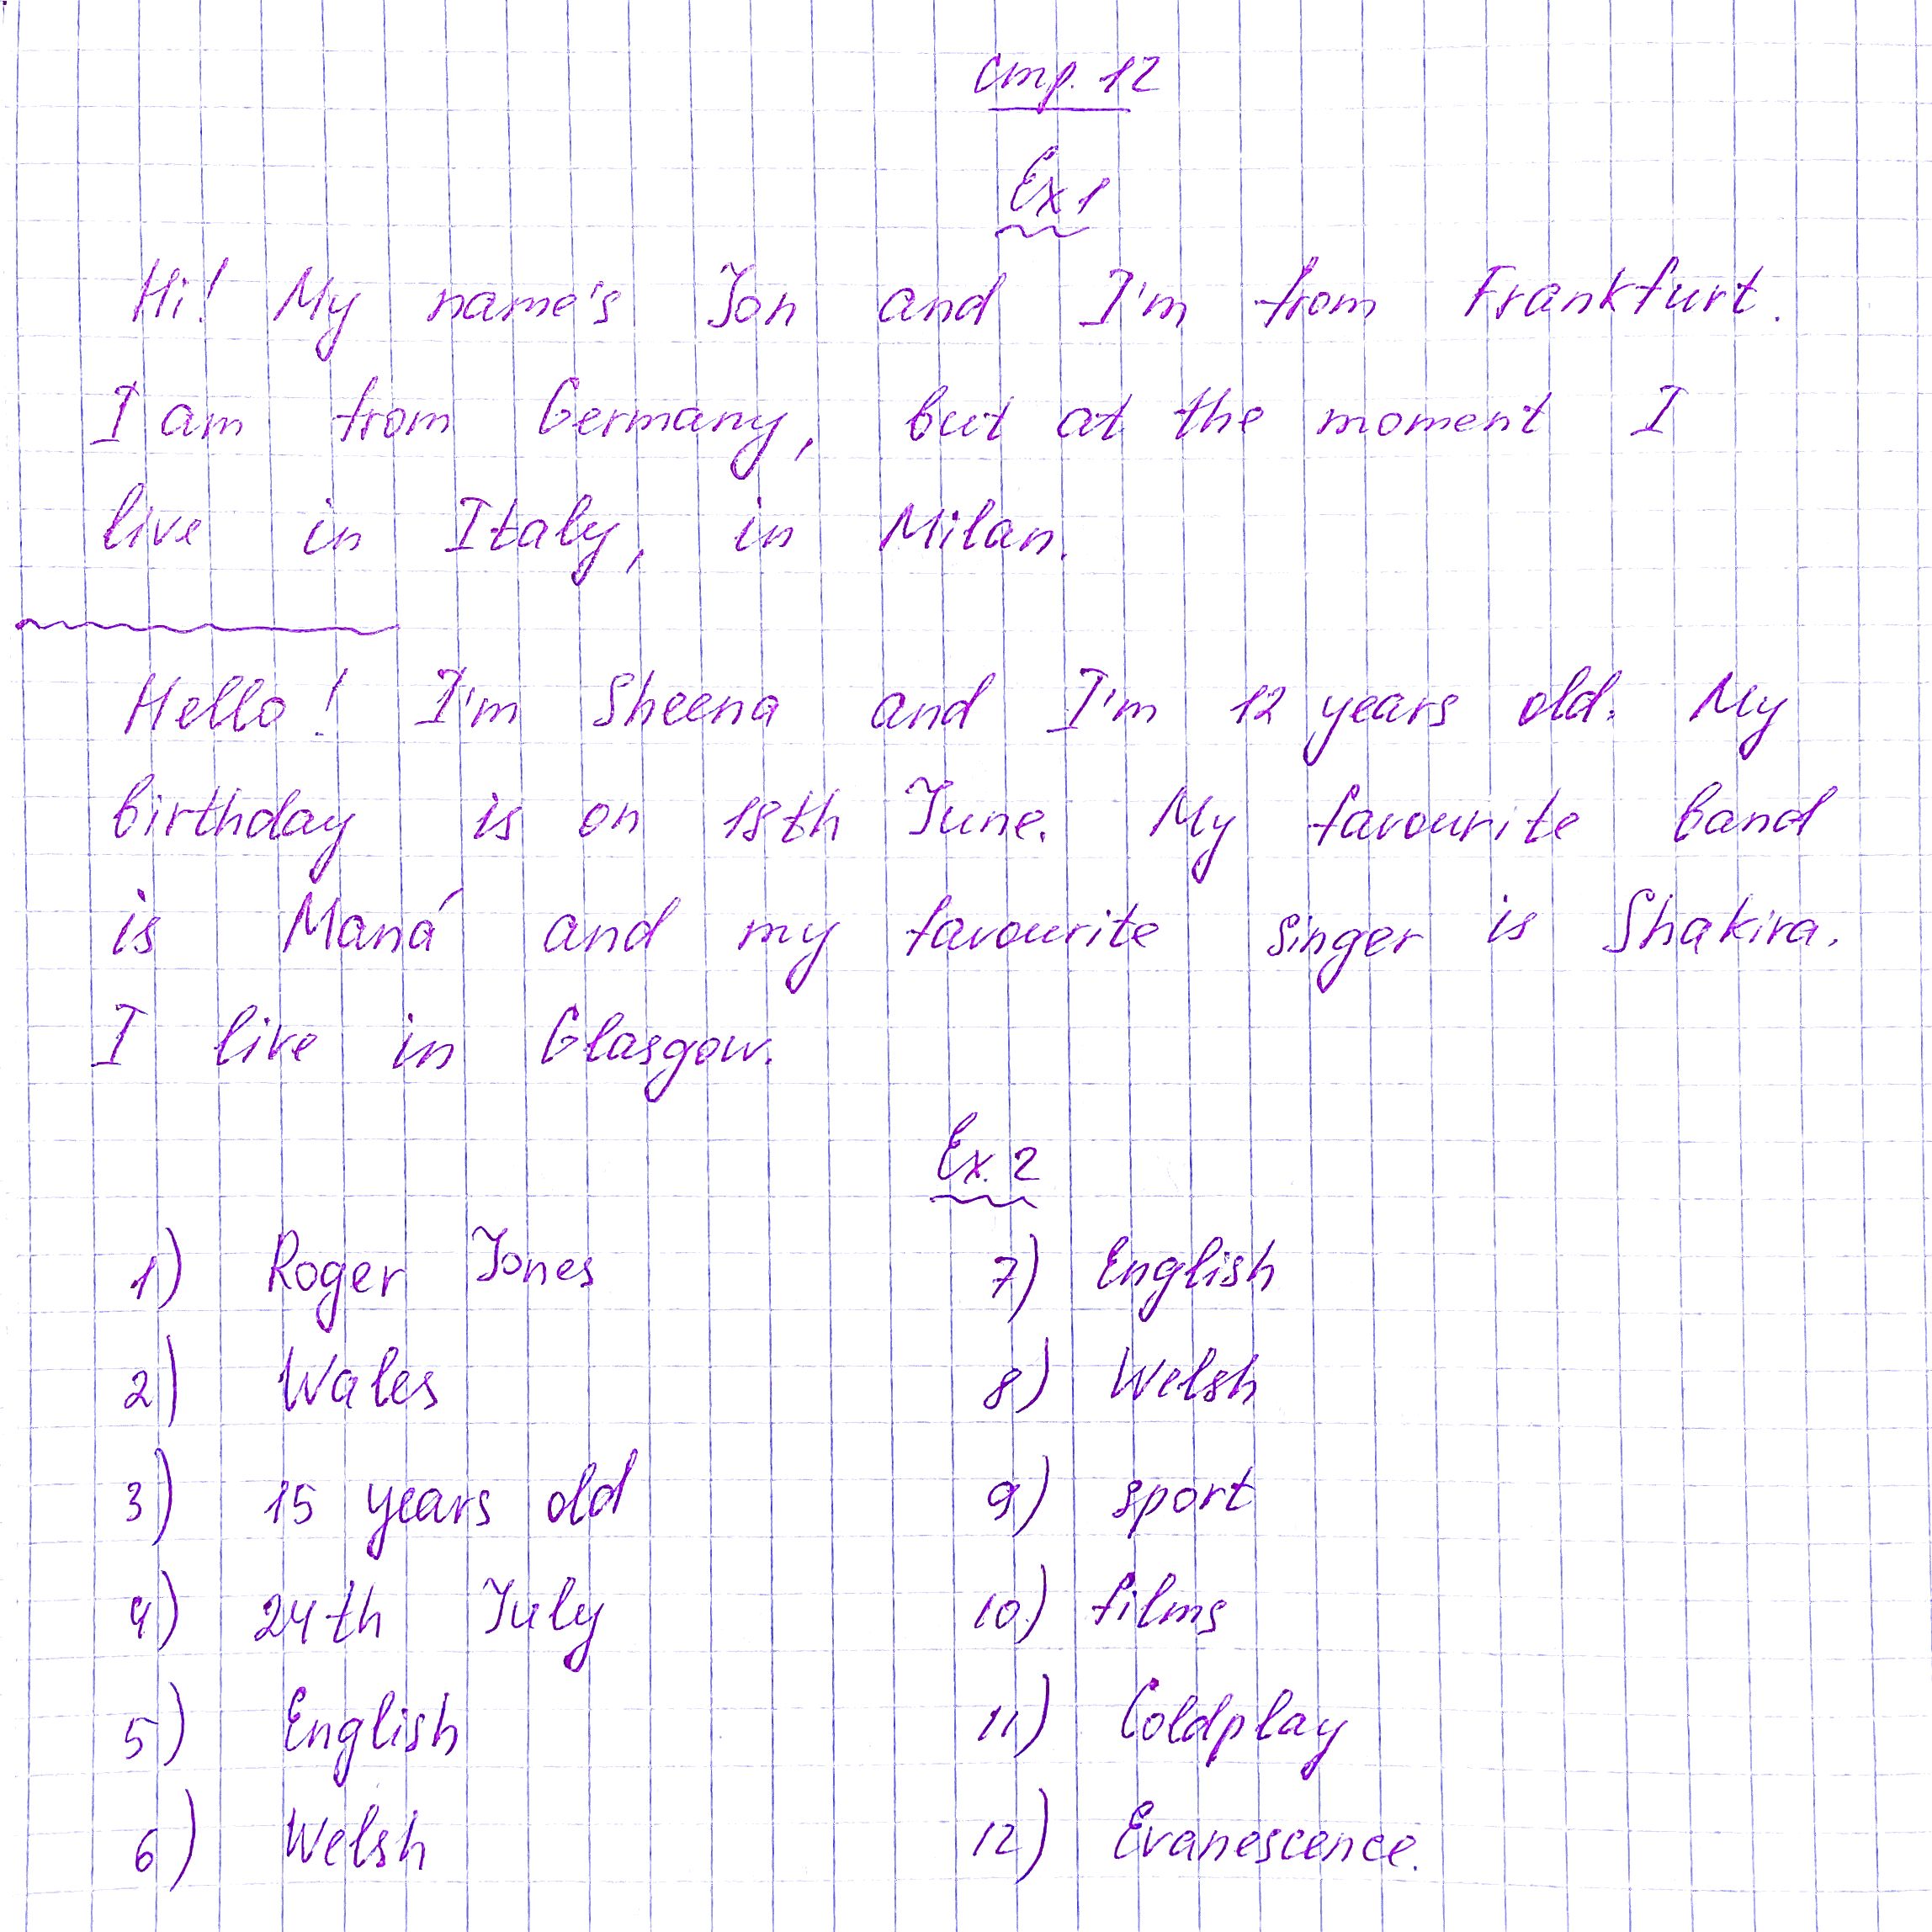 стр. 12
Ex 1
Hi! My name's Jon and I'm from Frankfurt.
I am from Germany, but at the moment I
live in Italy, in Milan.
Hello! I'm Sheena and I'm 12 years old. My
birthday is on 18th June. My favourite band
is Maná and my favourite singer is Shakira.
I live in Glasgow.
Ex. 2
1) Roger Jones
2) Wales
3) 15 years old
4) 24th July
5) English
6) Welsh
7) English
8) Welsh
9) sport
10) films
11) Coldplay
12) Evanescence.